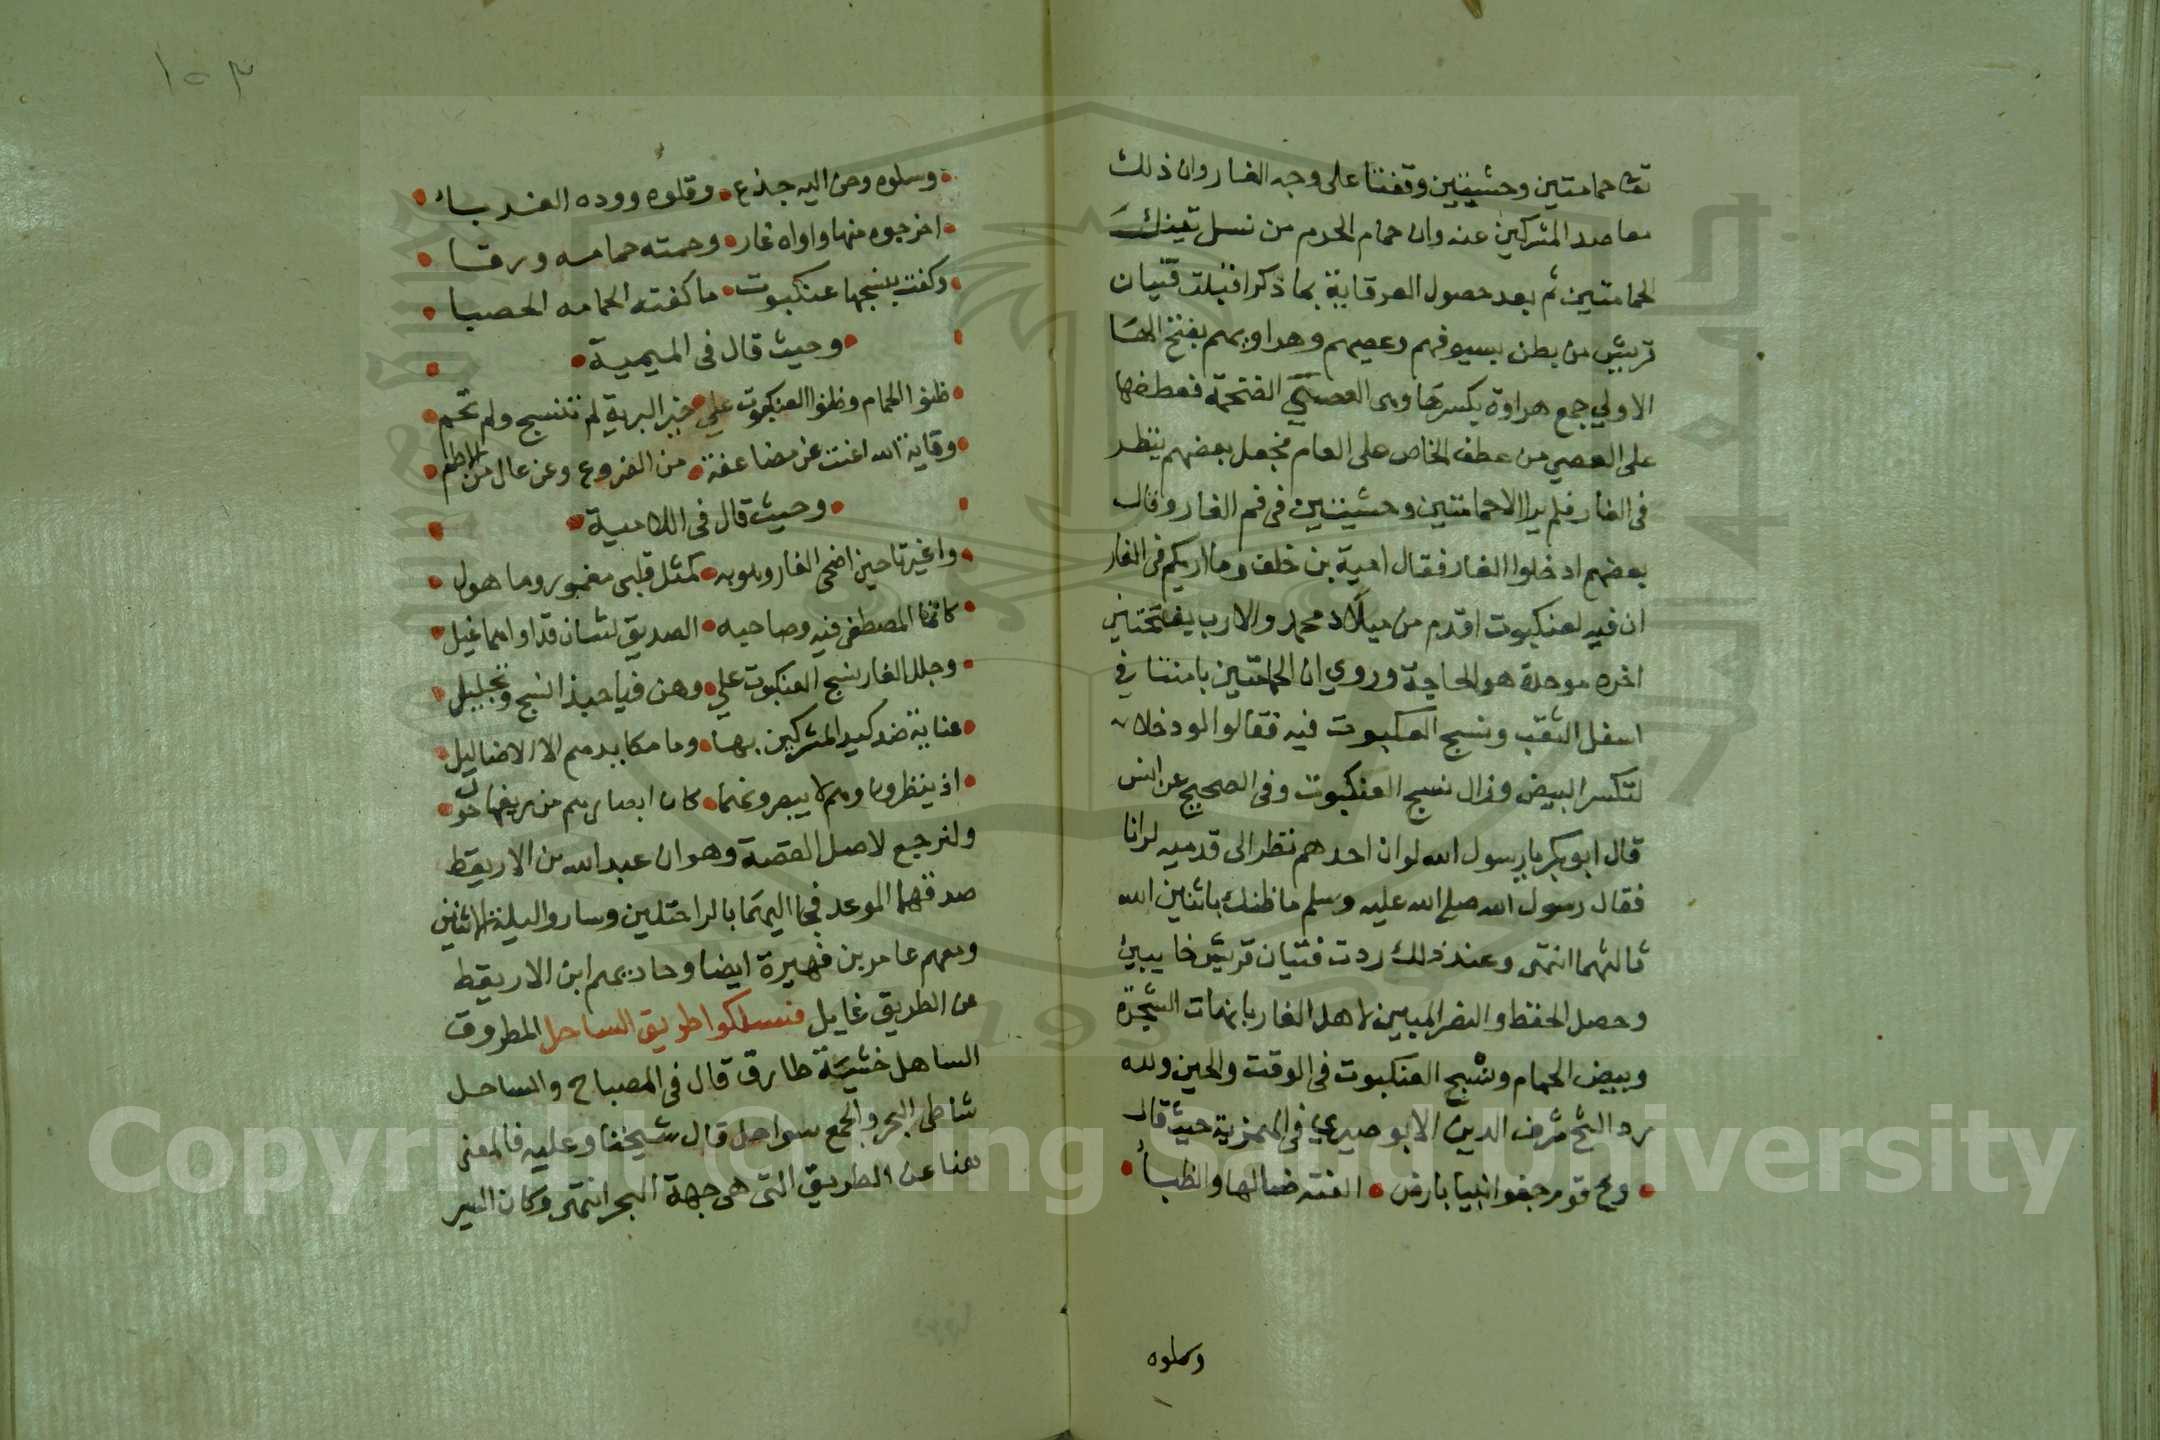 تعالى حمامتين وحشيتين وقفتا على وجه الغار وان ذلك
مما صد المشركين عنه وان حمام الحرم من نسل تينك
الحمامتين ثم بعد حصول العرقابة بما ذكر اقبلت فتيان
قريش من بطن بسيوفهم وعصيهم وهراويهم بفتح الها
الاولي جمع هراوة بكسرها وهى العصى الضخمة فعطفها
على العصي من عطف الخاص على العام فجعل بعضهم ينظر
فى الغار فلم ير الاحمامتين وحشيتين فى فم الغار وقال
بعضهم ادخلوا الغار فقال امية بن خلف وما اربكم فى الغار
ان فيه لعنكبوت اقدم من ميلاد محمد والارب بفتحتين
اخره موحدة هو الحاجة وروي ان الحمامتين باضتا في
اسفل الثقب ونسج العنكبوت فيه فقالوا لو دخلا
لتكسر البيض وزال نسج العنكبوت وفى الصحيح عن انس
قال ابو بكر يا رسول الله لو ان احدهم نظر الى قدميه لرانا
فقال رسول الله صلى الله عليه وسلم ما ظنك باثنين الله
ثالثهما انتهى وعند ذلك ردت فتيان قريش خايبين
وحصل الحفظ والنصر المبين لاهل الغار بانبات الشجرة
وبيض الحمام ونسج العنكبوت فى الوقت والحين ولله
در الشيخ شرف الدين الابوصيري فى الهمزية حيث قال
ويح قوم جفوا نبيا بارض الفته ضبالها والظباء
وسلوه
وسلوه وحن اليه جذع وقلوه ووده الغرباء
اخرجوه منها واواه غار وحمته حمامه ورقا
وكفته بنسجها عنكبوت ما كفته الحمامه الحصبا
وحيث قال فى الميمية
ظنوا الحمام وظنوا العنكبوت علي خير البرية لم تنسج ولم تحم
وقاية الله اغنت عن مضاعفة من الدروع وعن عال من الاطم
وحيث قال فى اللامية
واغيرتا حين اضحى الغار وهو به كمثل قلبى معمور وماهول
كانما المصطفى فيه وصاحبه الصديق ليثان قد اواهما غيل
وجلل الغار نسج العنكبوت علي وهن فيا حبذا نسج وتجليل
عناية ضد كيد المشركين بها وما مكايدهم الا الاضاليل
اذ ينظرون وهم لا يبصرونهما كان ابصارهم من زيغها حول
ولنرجع لاصل القصة وهو ان عبد الله بن الاريقط
صدقهما الموعد فجا اليهما بالراحتلين وساروا ليلة الاثنين
ومعهم عامر بن فهيرة ايضا وحاد بهم ابن الاريقط
عن الطريق غايل فسلكوا طريق الساحل المطروق
الساهل خشية طارق قال فى المصباح والساحل
شاطى البحر والجمع سواحل قال شيخنا وعليه فالمعنى
هنا عن الطريق التى هى جهة البحر انتهى وكان السير
١٥٣
Copyright © King Saud University
1957